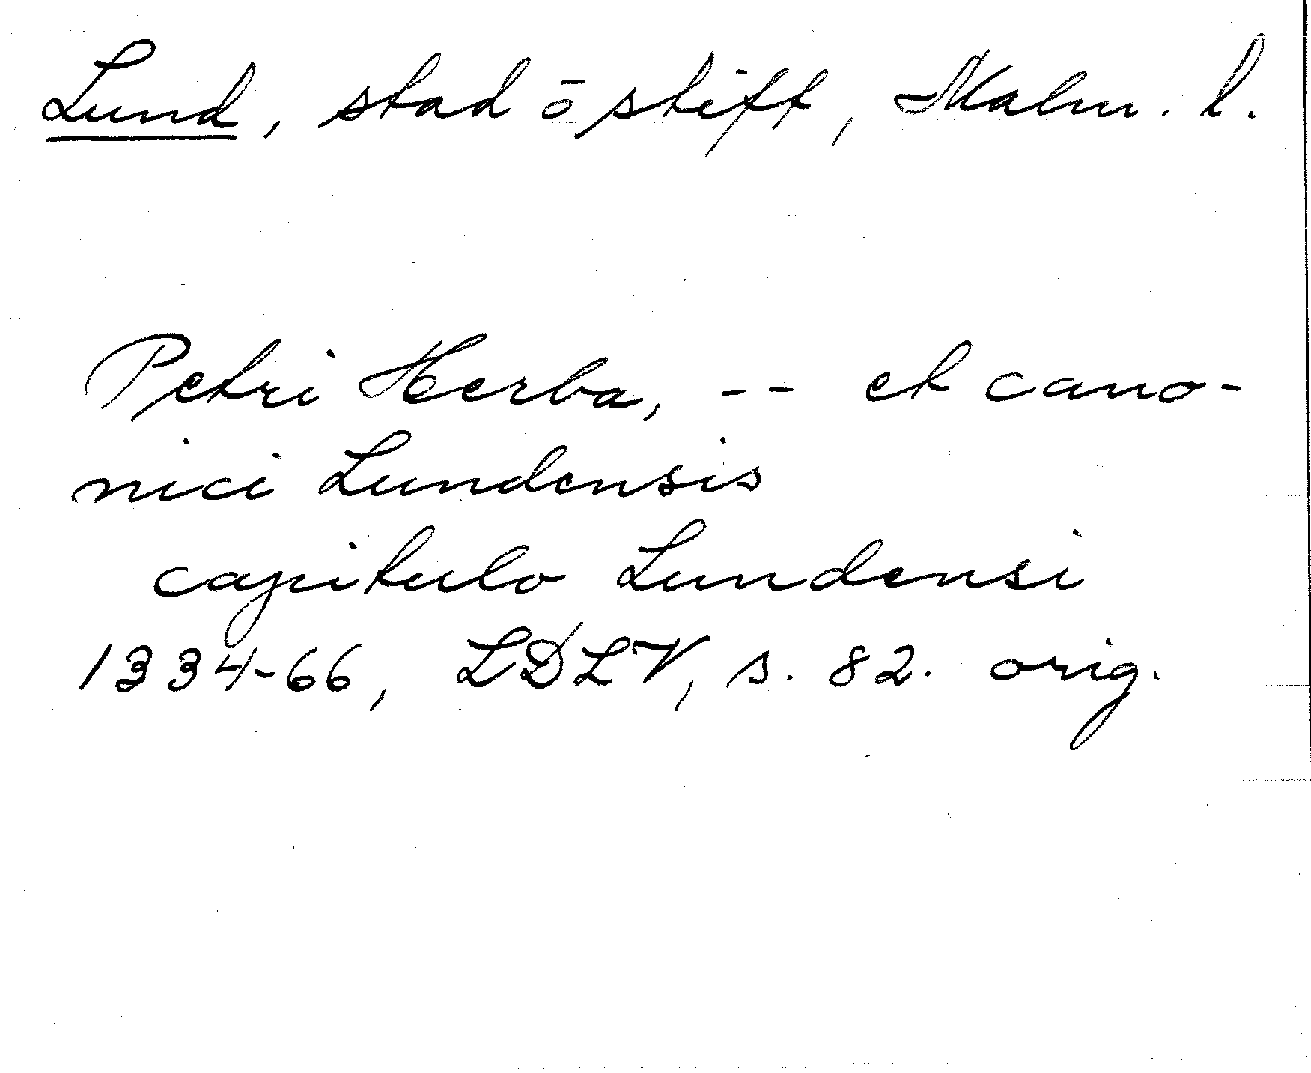 Lund, stad ō stift, Malm. l.
Petri Herba, -- et cano-
nici Lundensis
capitulo Lundensi
1334-66, LDLV, s. 82. orig.